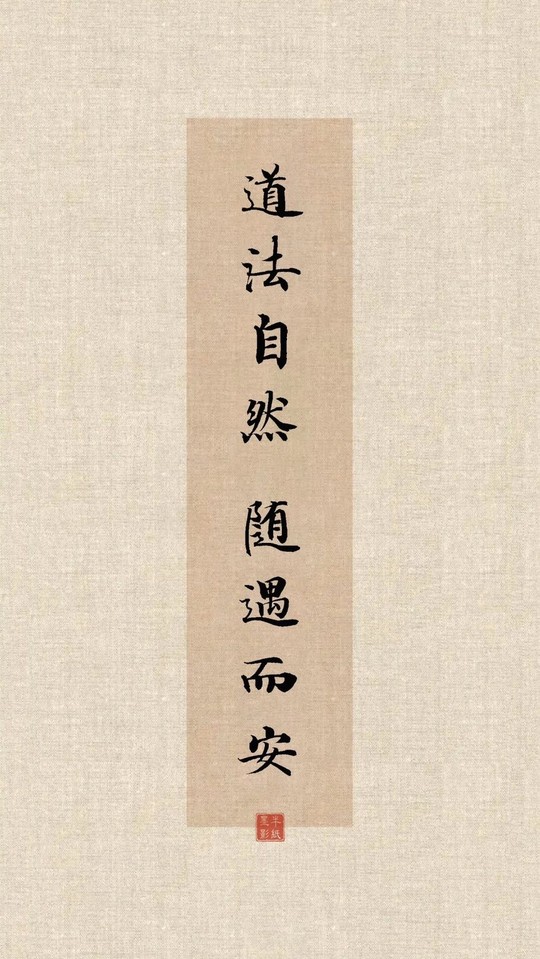 道法自然 随遇而安
半紙墨影